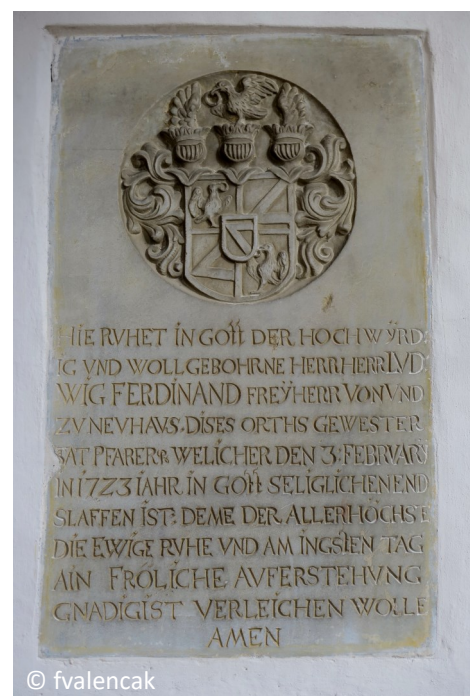 HIE RVHET IN GOTT DER HOCHWŸRD:
IG VND WOLLGEBOHRNE HERR HERR LVD
WIG FERDINAND FREŸHERR VON VND
ZV NEVHAVS, DISES ORTHS GEWESTER
PFARER WELICHER DEN 3: FEBRVARŸ
IN 1723 IAHR IN GOTT SELIGLICHEN END
SLAFFEN IST: DEME DER ALLERHÖCHSTE
DIE EWIGE RVHE VND AM INGSTEN TAG
AIN FRÖLICHE AVFERSTEHVNG
GNADIGIST VERLEICHEN WOLLE
AMEN
© fvalencak